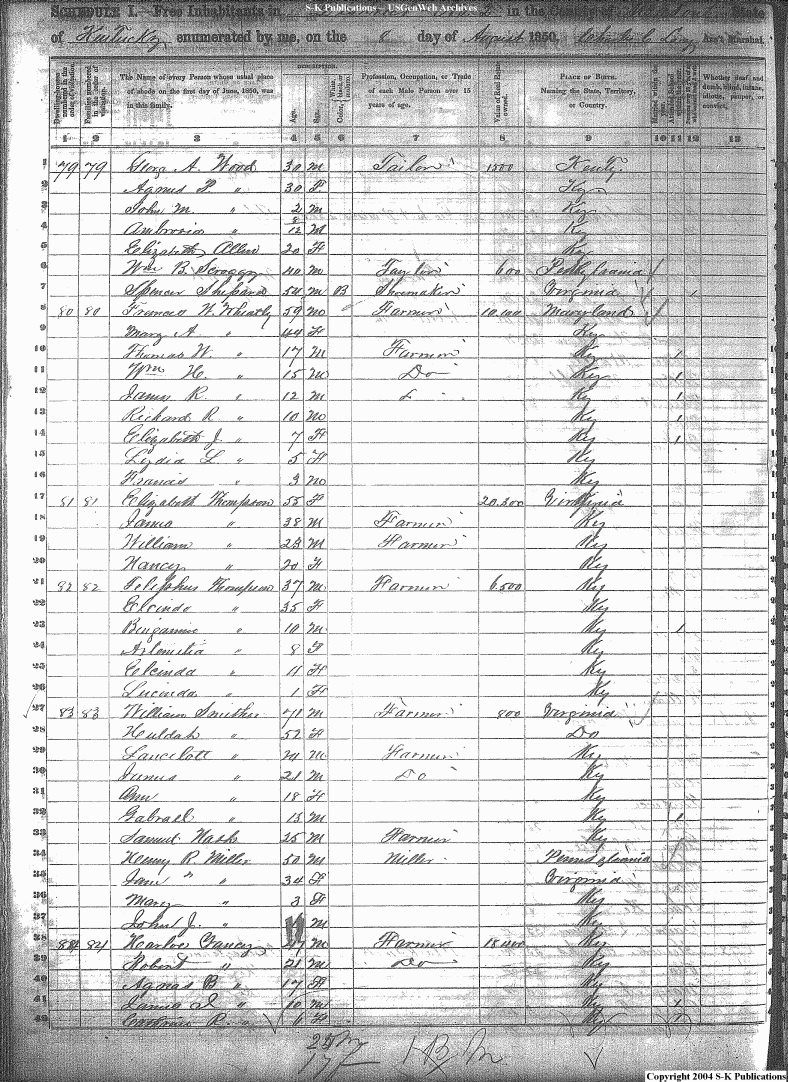 S-K Publications – USGenWeb Archives
SCHEDULE I.—Free Inhabitants in in the County State
of Kentucky enumerated by me, on the 8 day of August 1850. Ass't Marshal.
Dwelling-houses numbered in the order of visitation. Families numbered in the order of visitation. The Name of every Person whose usual place of abode on the first day of June, 1850, was in this family. DESCRIPTION. Age. Sex. Color, White, black, or mulatto. Profession, Occupation, or Trade of each Male Person over 15 years of age. Value of Real Estate owned. PLACE OF BIRTH. Naming the State, Territory, or Country. Whether deaf and dumb, blind, insane, idiotic, pauper, or convict.
1 2 3 4 5 6 7 8 9 10 11 12 13
1 79 79 A. Wood 30 M Tailor 1500 Kenty.
2 Agnes P. " 30 F. Ky
3 John M. " 2 M Ky
4 Ambrosia " 8/12 M Ky
5 Elizabeth Allen 20 F Ky
6 Wm B. Scroggy 40 M Taylor 600
7 Spencer Shepard 54 M B Shomaker Virginia
8 80 80 Francis W. Wheatly 59 M Farmer Maryland
9 Mary A. " 44 F Ky
10 Thomas W. " 17 M Farmer Ky 1
11 Wm H. " 15 M Do Ky 1
12 James R. " 12 M Ky 1
13 Richard R " 10 M Ky 1
14 Elizabeth J. " 7 F Ky 1
15 Lydia L " 5 F Ky
16 Francis " 3 M Ky
17 81 81 Elizabeth Thompson 55 F 20.300 Virginia
18 James " 38 M Farmer Ky
19 William " 23 M Farmer Ky
20 Nancy " 20 F Ky
21 82 82 Thompson 37 M Farmer 6.500 Ky
22 Elcinda " 35 F Ky
23 Bingamin " 10 M Ky 1
24 Artemitia " 8 F Ky
25 Elcinda " 11 F Ky
26 Lucinda " 1 F Ky
27 83 83 William Smither 71 M Farmer 800 Virginia
28 Huldah " 52 F Do
29 Lancelott " 24 M Farmer Ky
30 James " 21 M Do Ky
31 Ann " 18 F Ky
32 Gabrael " 13 M Ky 1
33 Samuel Nash 25 M Farmer Ky
34 Henry R. Miller 50 M Miller Pennsylvania
35 Jane " " 34 F Virginia
36 Mary " 3 F Ky
37 John J. " M Ky
38 84 84 Yancy 47 M Farmer Ky
39 Robert " 21 M Do Ky
40 Agnes B " 17 F Ky
41 James S " 10 M Ky 1
42 R. " 6 F Ky 1
25 M
17 F 1 B M
Copyright 2004 S-K Publications